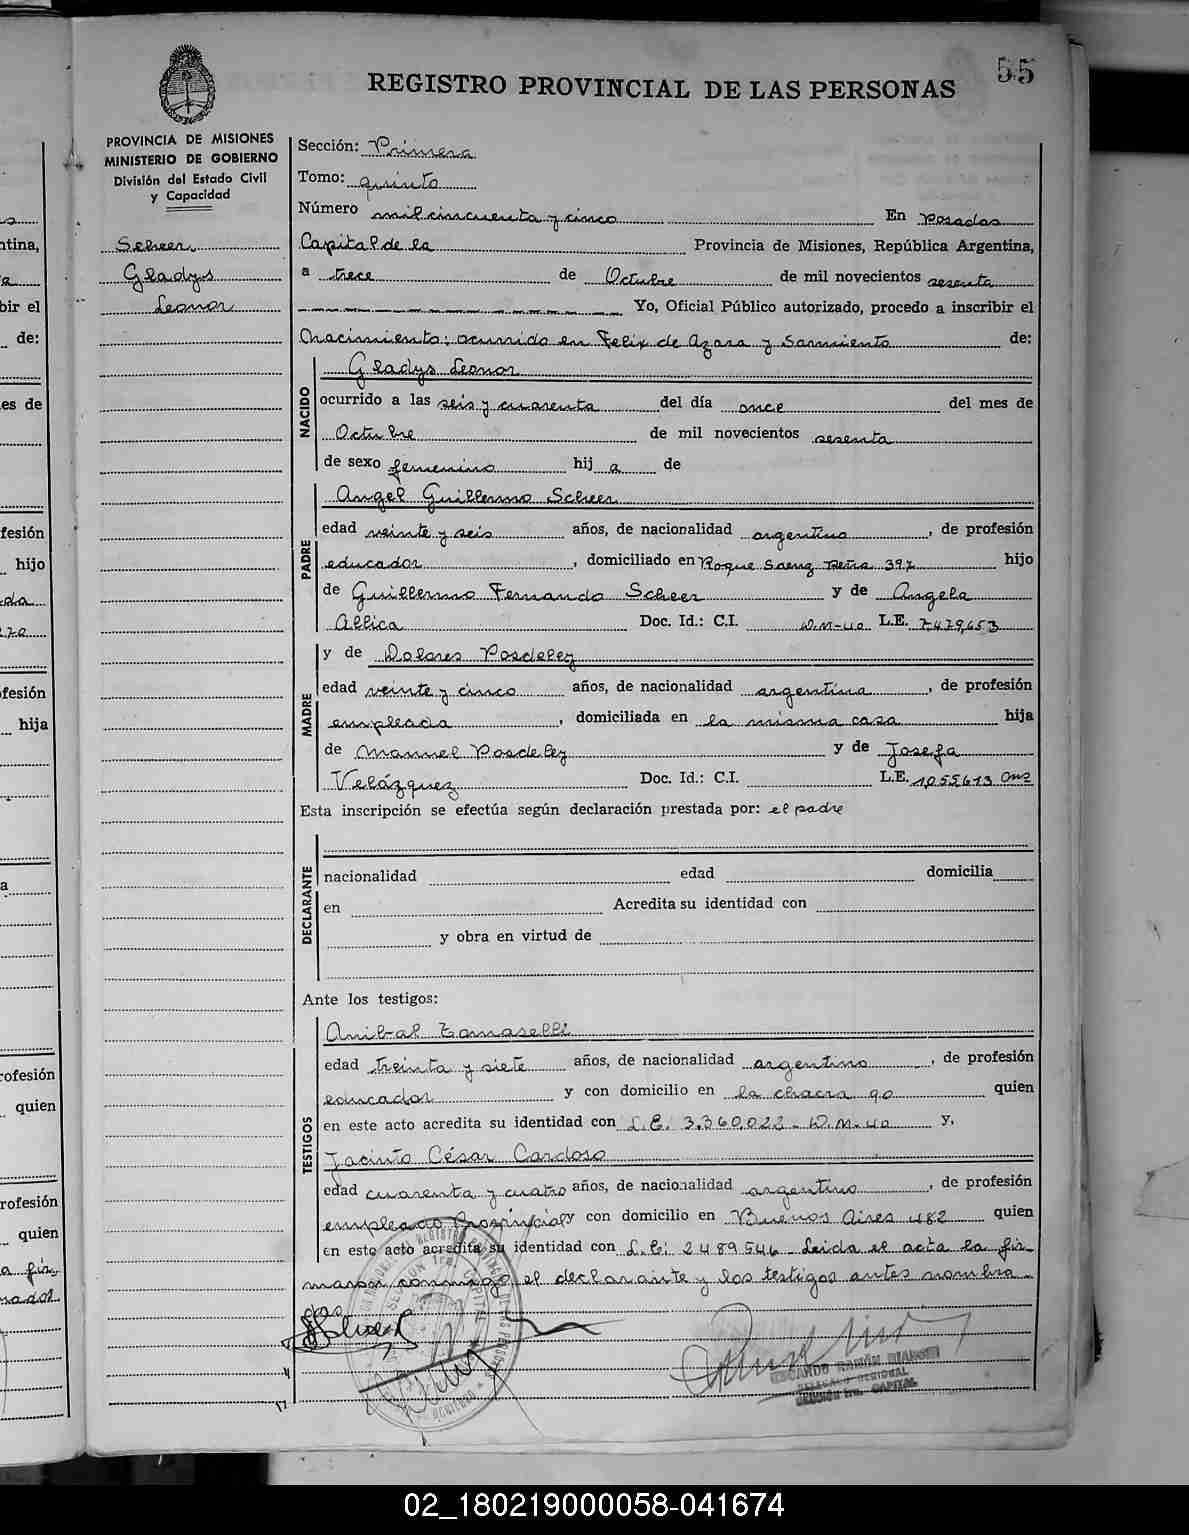 55
REGISTRO PROVINCIAL DE LAS PERSONAS
PROVINCIA DE MISIONES
MINISTERIO DE GOBIERNO
División del Estado Civil
y Capacidad
Scheer
Gladys
Leonor
Sección: Primera
Tomo: quinto
Número mil cincuenta y cinco En Posadas
Capital de la Provincia de Misiones, República Argentina,
a trece de Octubre de mil novecientos sesenta
Yo, Oficial Público autorizado, procedo a inscribir el
Nacimiento: ocurrido en Felix de Azara y Sarmiento de:
NACIDO
Gladys Leonor
ocurrido a las seis y cuarenta del día once del mes de
Octubre de mil novecientos sesenta
de sexo femenino hij a de
PADRE
Angel Guillermo Scheer
edad veinte y seis años, de nacionalidad argentino, de profesión
educador, domiciliado en Roque Saenz Peña 397 hijo
de Guillermo Fernando Scheer y de Angela
Allica Doc. Id.: C.I. D.M-40 L.E. 7.479.653
MADRE
y de Dolores Posdeley
edad veinte y cinco años, de nacionalidad argentina, de profesión
empleada, domiciliada en la misma casa hija
de Manuel Posdeley y de Josefa
Velázquez Doc. Id.: C.I. L.E. 1.055.613
Esta inscripción se efectúa según declaración prestada por: el padre
DECLARANTE
nacionalidad edad domicilia
en Acredita su identidad con
y obra en virtud de
Ante los testigos:
TESTIGOS
Anibal Tomaselli
edad treinta y siete años, de nacionalidad argentino, de profesión
educador y con domicilio en la chacra 90 quien
en este acto acredita su identidad con L.E. 3.360.023 - D.M-40 y,
Jacinto César Cardoso
edad cuarenta y cuatro años, de nacionalidad argentino, de profesión
empleado Provincial y con domicilio en Buenos Aires 482 quien
en este acto acredita su identidad con L.E: 2489546 - Leida el acta la fir-
maron conmigo el declarante y los testigos antes nombra-
dos
DELEGADO REGIONAL
SECCIÓN 1ra. CAPITAL
02_180219000058-041674